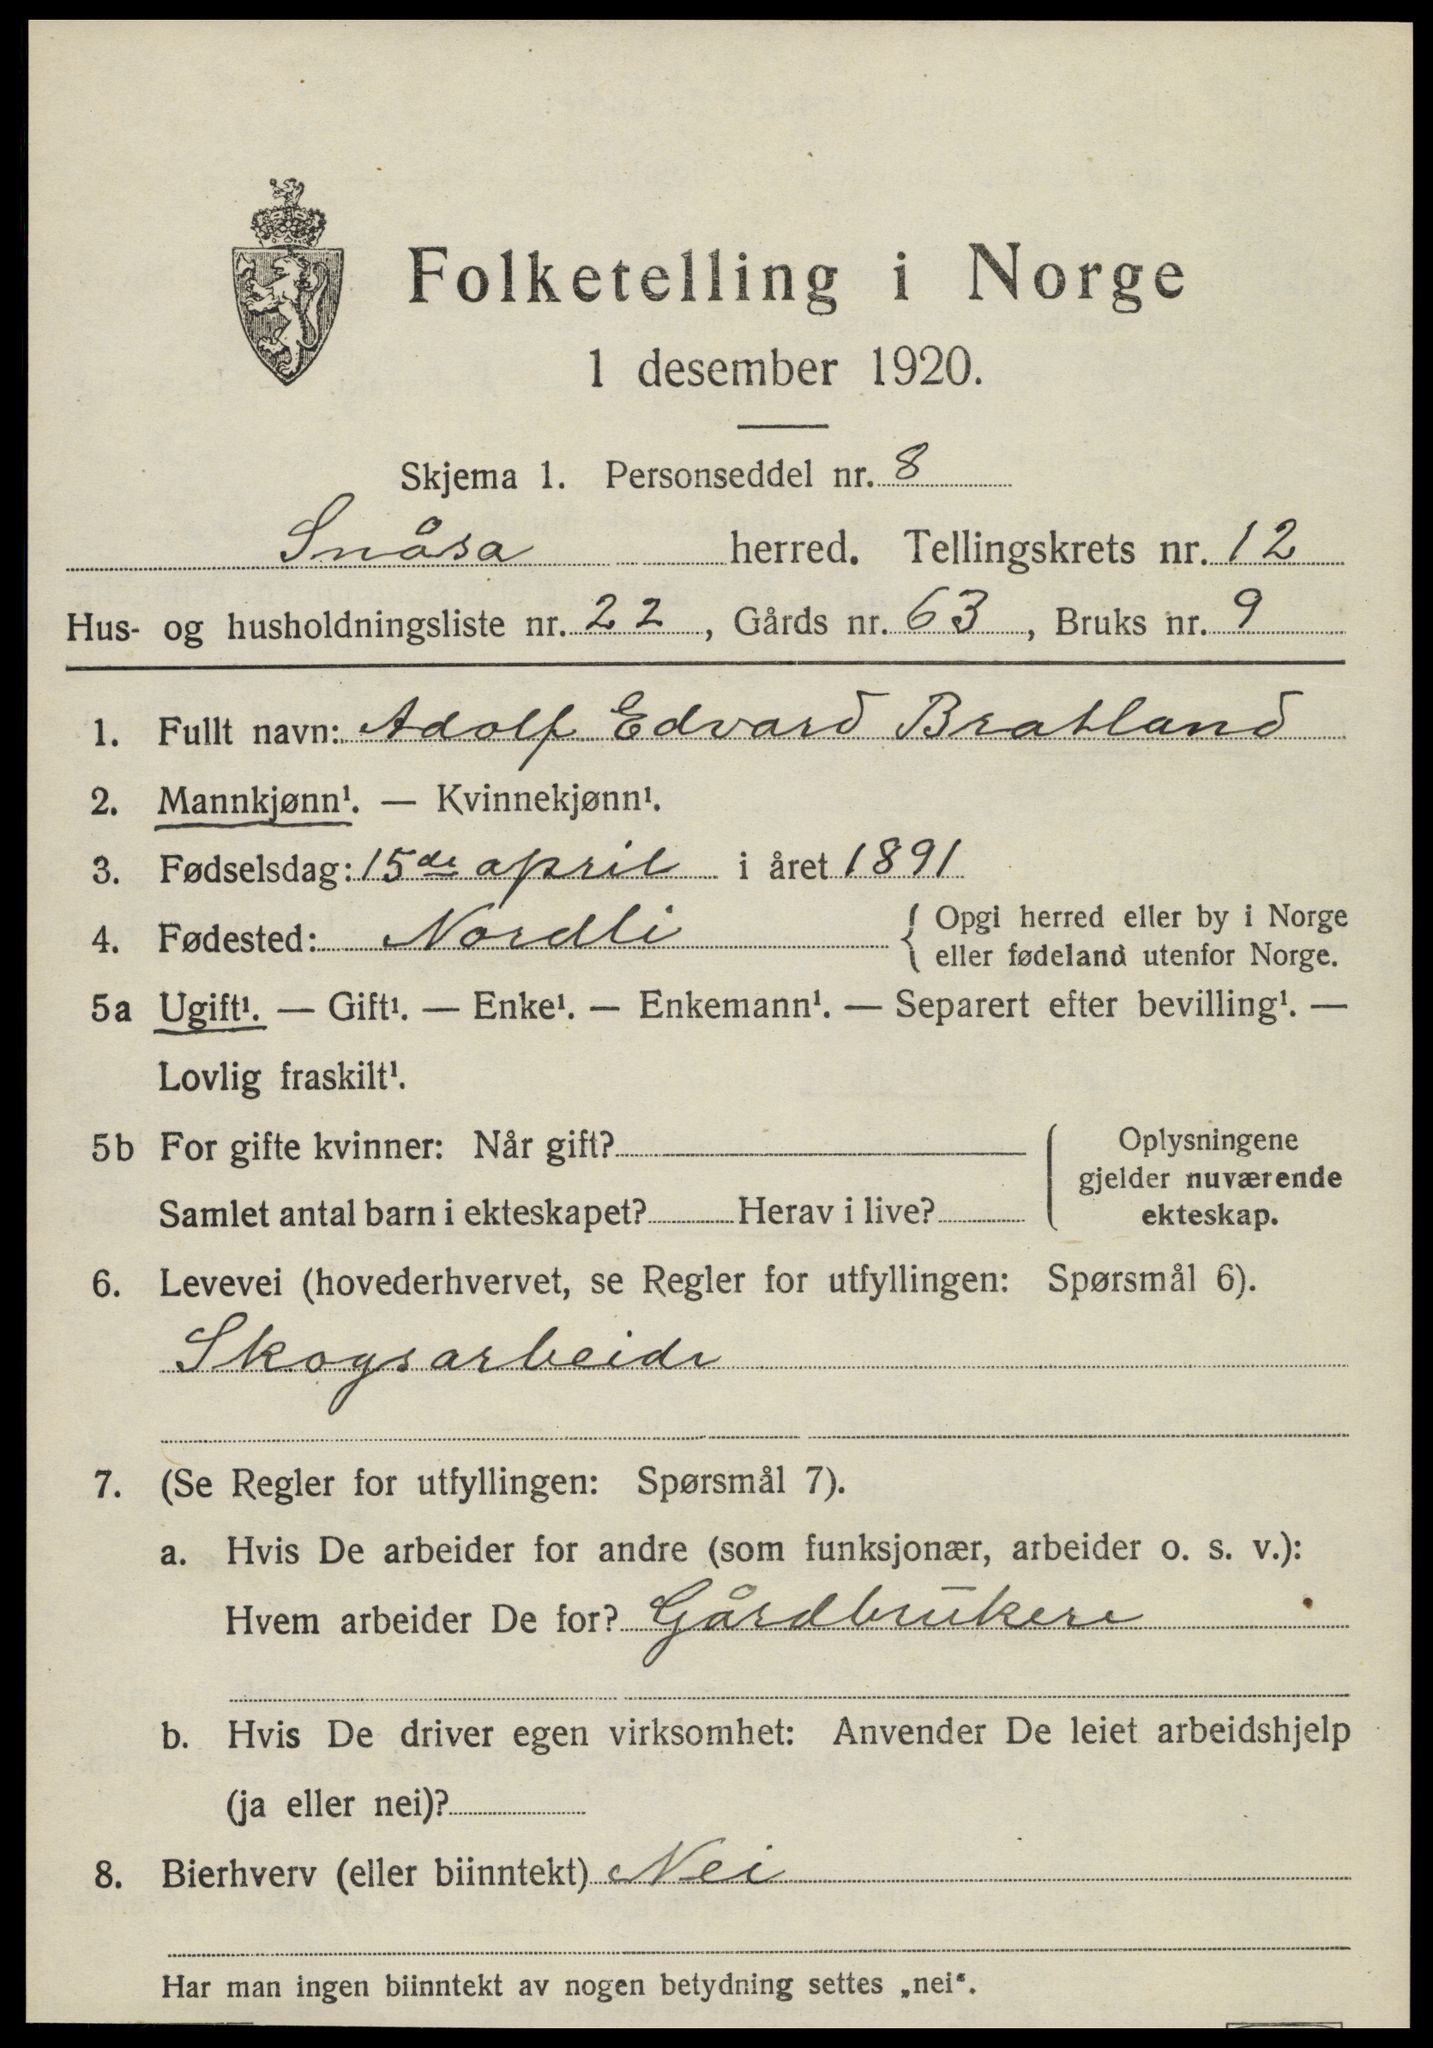 Folketelling i Norge
1 desember 1920.
Skjema 1. Personseddel nr. 8
Snåsa herred. Tellingskrets nr. 12
Hus- og husholdningsliste nr. 22, Gårds nr. 63, Bruks nr. 9
1. Fullt navn: Adolf Edvard Bratland
2. Mannkjønn¹. — Kvinnekjønn¹.
3. Fødselsdag: 15de april i året 1891
4. Fødested: Nordli { Opgi herred eller by i Norge
eller fødeland utenfor Norge.
5a Ugift¹. — Gift¹. — Enke¹. — Enkemann¹. — Separert efter bevilling¹. —
Lovlig fraskilt¹.
5b For gifte kvinner: Når gift? { Oplysningene
gjelder nuværende
Samlet antal barn i ekteskapet? Herav i live? ekteskap.
6. Levevei (hovederhvervet, se Regler for utfyllingen: Spørsmål 6).
Skogsarbeide
7. (Se Regler for utfyllingen: Spørsmål 7).
a. Hvis De arbeider for andre (som funksjonær, arbeider o. s. v.):
Hvem arbeider De for? Gårdbrukere
b. Hvis De driver egen virksomhet: Anvender De leiet arbeidshjelp
(ja eller nei)?
8. Bierhverv (eller biinntekt) Nei
Har man ingen biinntekt av nogen betydning settes „nei“.